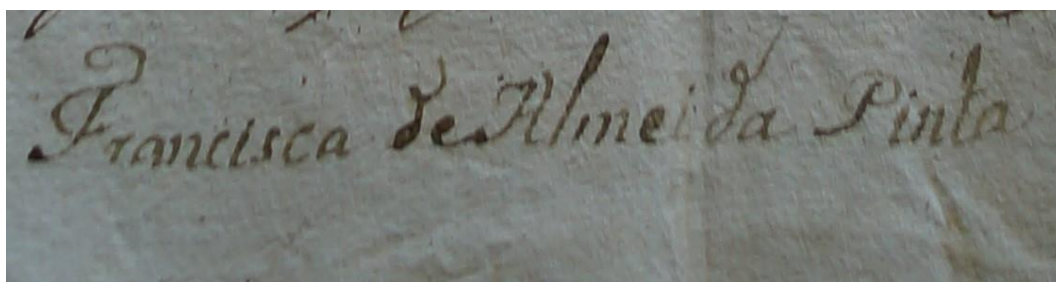 Francisca de Almeida Pinta